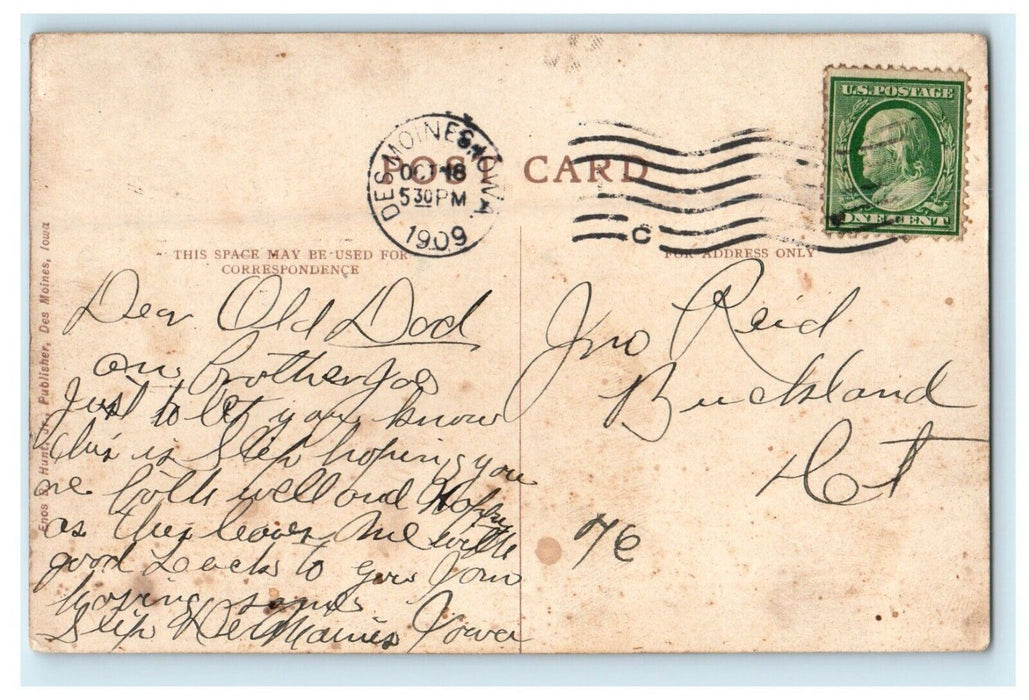 U.S. POSTAGE
ONE CENT
DES MOINES, IOWA
OCT 18
5 30 PM
1909
C
POST CARD
THIS SPACE MAY BE USED FOR
CORRESPONDENCE
FOR ADDRESS ONLY
Enos B. Hunt, Jr., Publisher, Des Moines, Iowa
Dear Old Dad
Brother Joe
Just to let you know
this is Slip hoping you
are both well and Happy
as this leaves me with
good Luck to you I am
hoping
Slip Des Maines Iowa
Jno Reid
Buckland
Ct